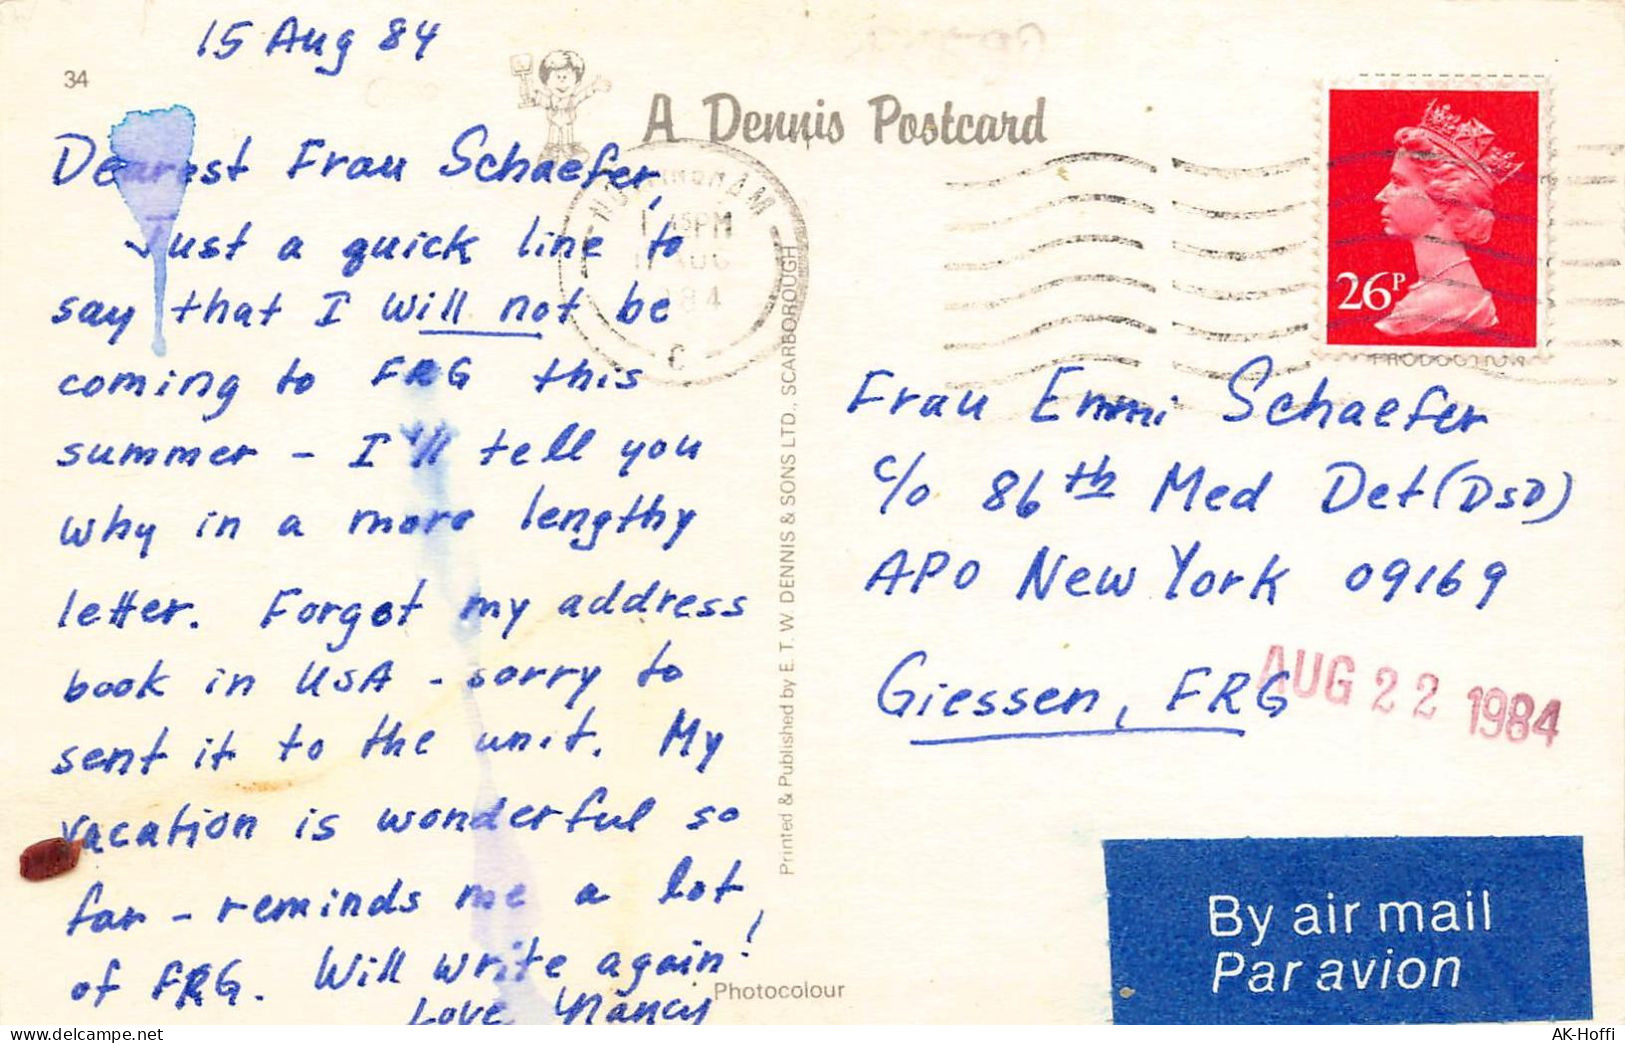 15 Aug 84
34
A Dennis Postcard
Dearest Frau Schaefer,
Just a quick line to
say that I will not be
coming to FRG this
summer - I'll tell you
why in a more lengthy
letter. Forgot my address
book in USA - sorry to
sent it to the unit. My
vacation is wonderful so
far - reminds me a lot
of FRG. Will write again!
Love Nancy
Printed & Published by E. T. W. DENNIS & SONS LTD., SCARBOROUGH
Photocolour
NOTTINGHAM
PM
AUG
C
26P
Frau Emmi Schaefer
c/o 86th Med Det (DSD)
APO New York 09169
Giessen, FRG
AUG 22 1984
By air mail
Par avion
AK-Hoffi